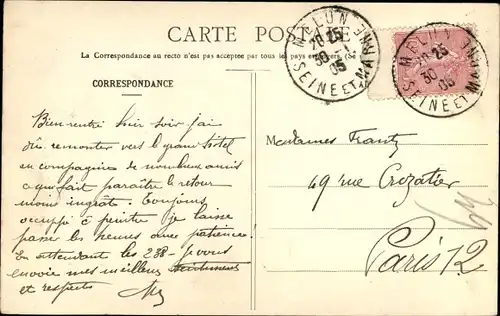 CARTE POSTALE
La Correspondance au recto n'est pas acceptée par tous les pays
CORRESPONDANCE
Bien rentré hier soir j'ai
dû remonter vers le grand hôtel
en compagnie de nombreux amis
ce qui fait paraître le retour
moins ingrat. Toujours
occupé à peindre je laisse
passer les heures avec patience.
En attendant les 238 - je vous
envoie mes meilleurs sentiments
et respects
Mesdames Frantz
49 rue Crozatier
Paris 12
MELUN
20 25
30 -1
05
SEINE ET MARNE
MELUN
20 25
30
05
SEINE ET MARNE